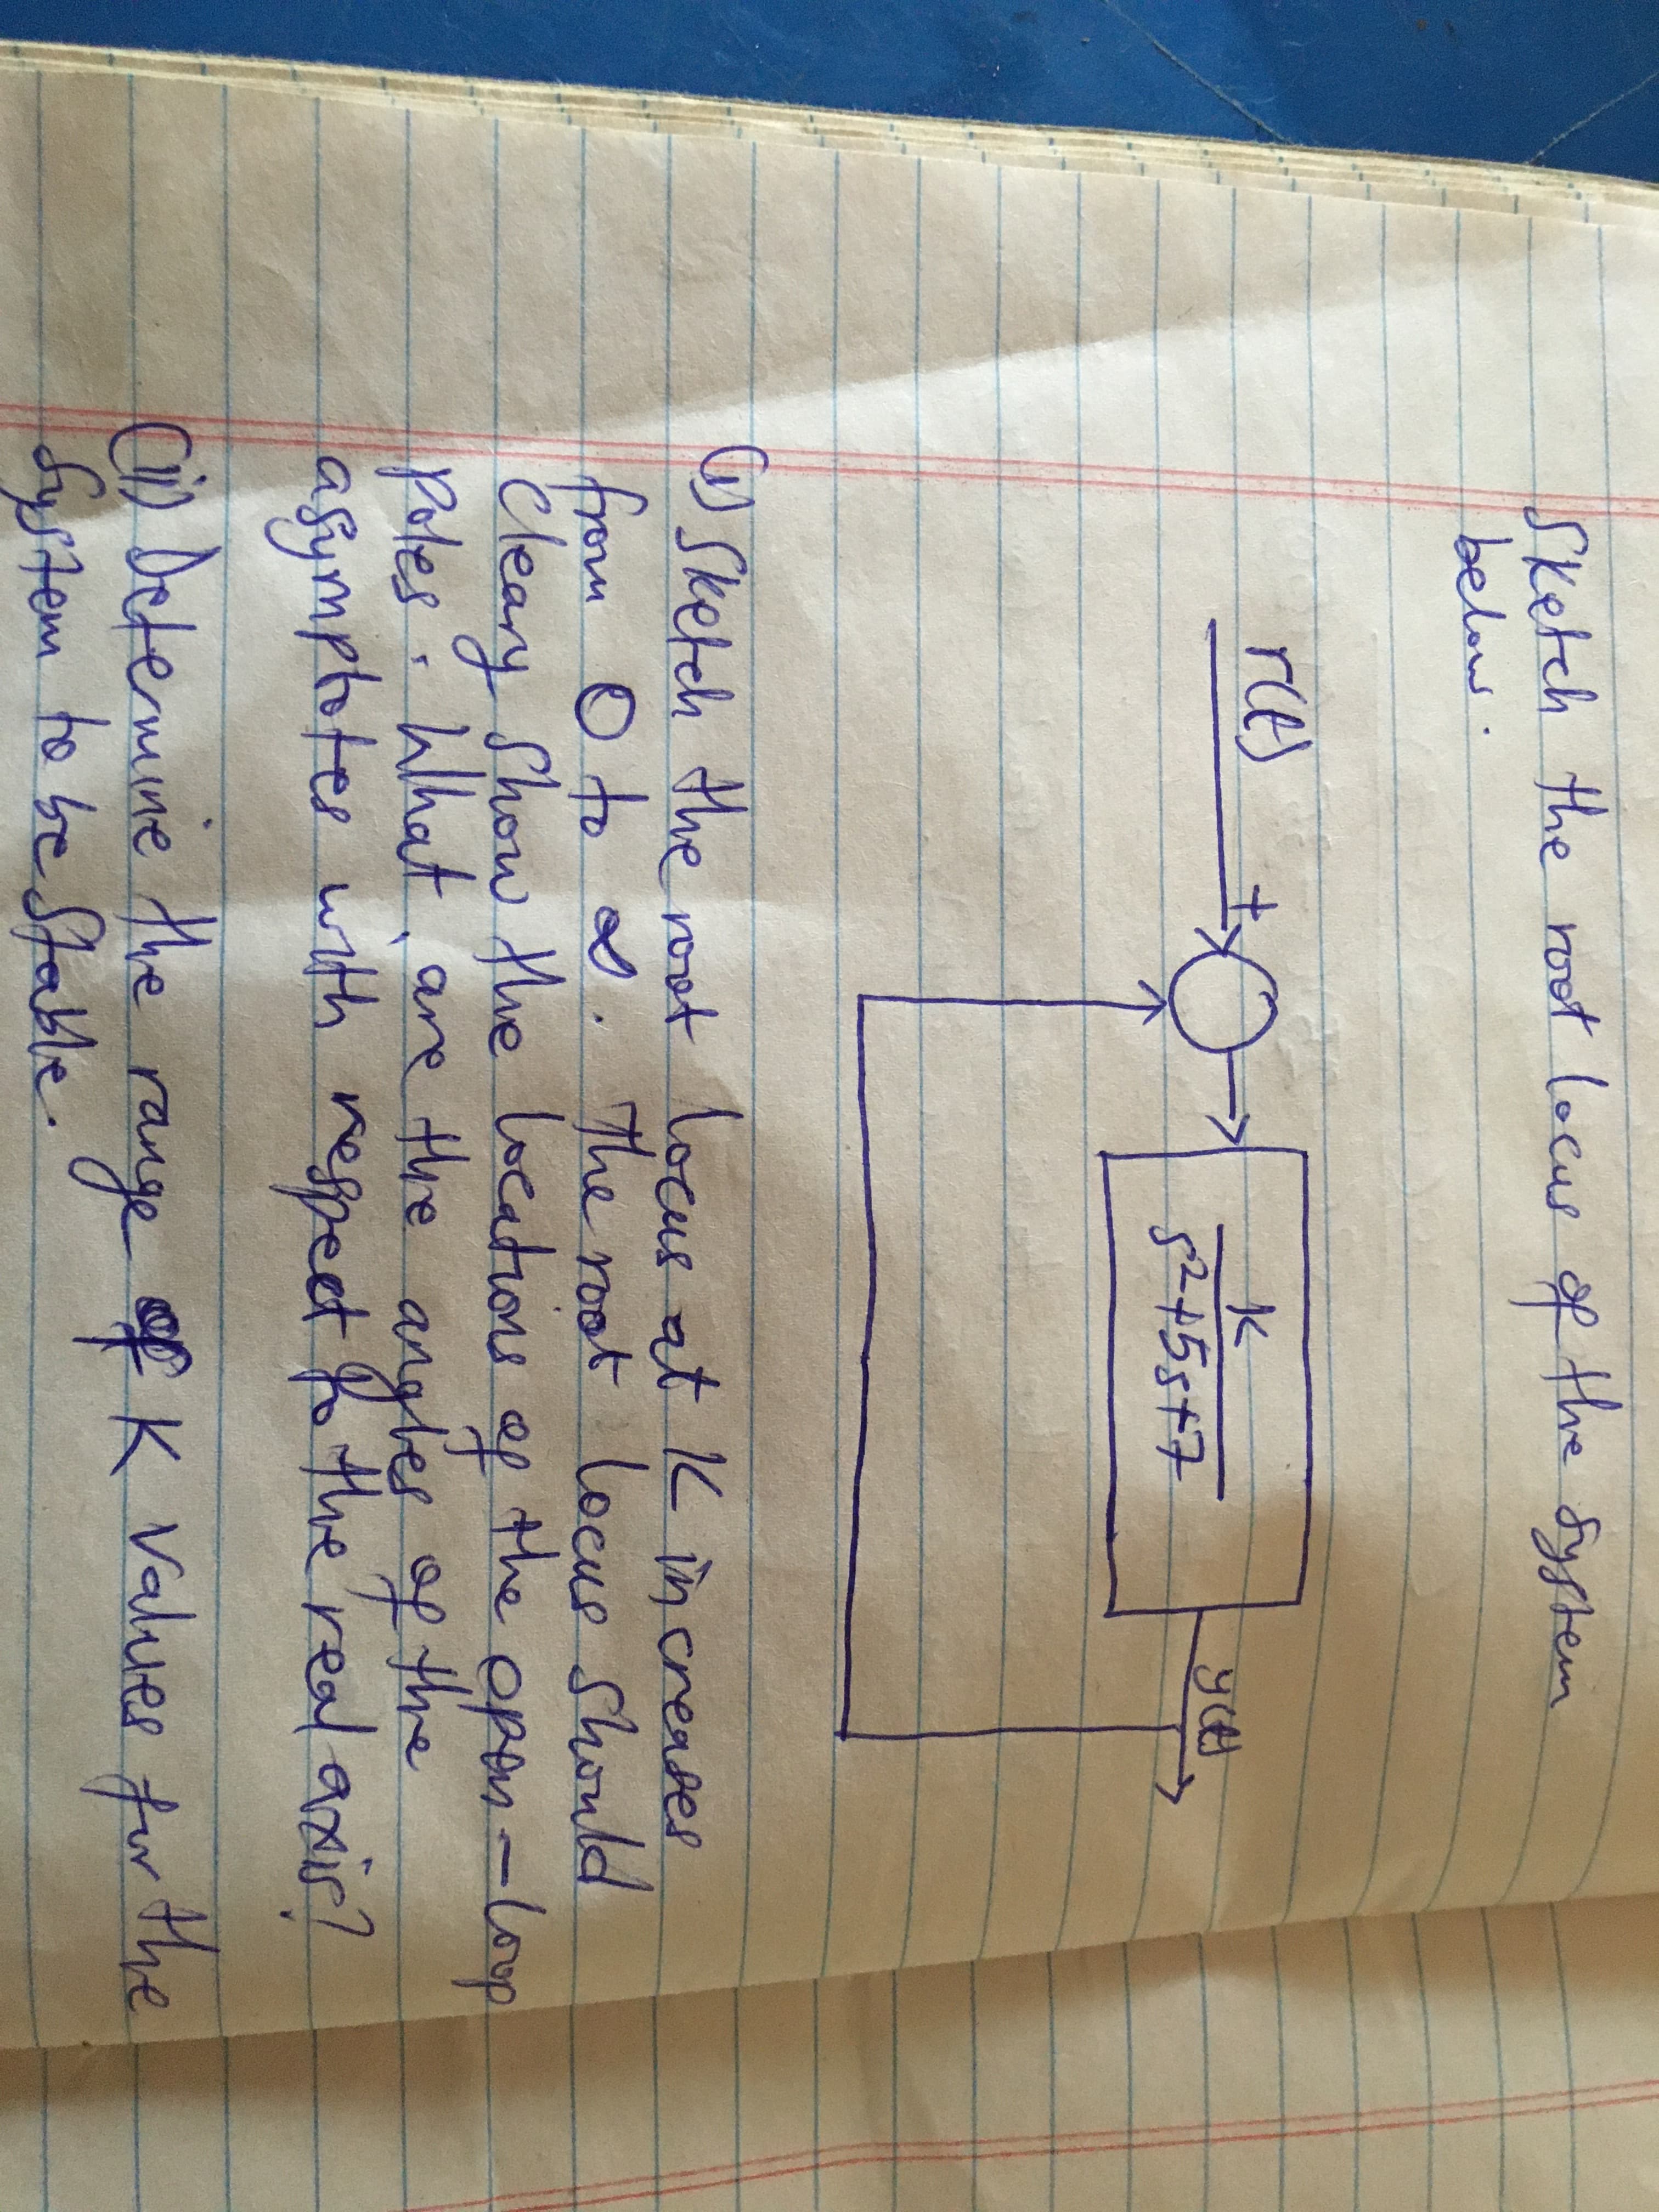 Sketch the root locus of the system
below.
r(t)
+
K
s²+5s+7
y(t)
(i) Sketch the root locus at K increases
from 0 to ∞. The root locus should
Cleary show the locations of the open-loop
Poles. What are the angles of the
asymptotes with respect to the real axis?
(ii) Determine the range of K values for the
System to be Stable.